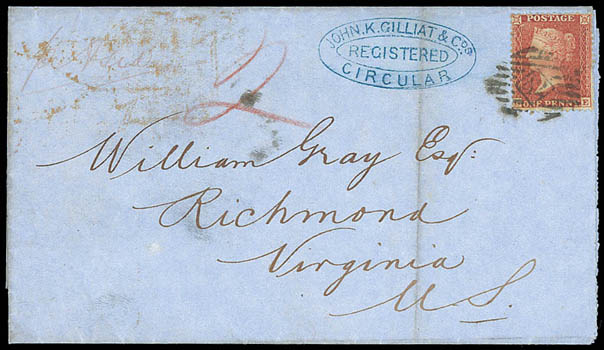 JOHN.K.GILLIAT & Cos
REGISTERED
CIRCULAR
POSTAGE
ONE PENNY
2
William Gray Esq:
Richmond
Virginia
U.S.